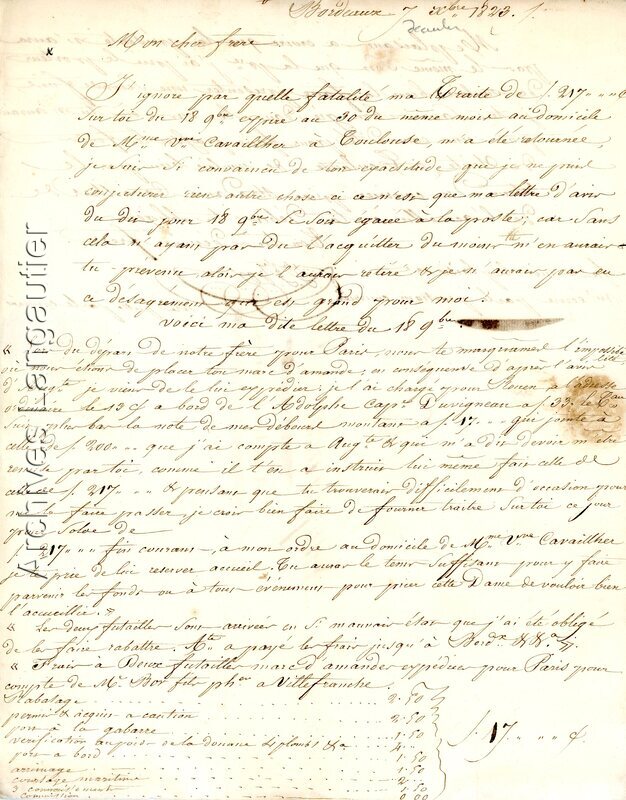 Bordeaux 7 Xbre 1823.
Mon cher frère
J'ignore par quelle fatalité ma Traite de f. 217 " " C
Sur toi du 18 9bre expiré au 30 du même mois au domicile
de Mme Vve Cavaillher à Toulouse, m'a été retournée,
je suis si convaincu de ton exactitude que je ne puis
conjecturer rien autre chose si ce n'est que ma lettre d'avis
du du jour 18 9bre se soit egarée à la poste; car sans
cela n'ayant pas du l'acquitter du moins tu m'en aurais
tu prevenu alors je l'aurais retiré & je n'aurais pas eu
ce désagrément qui est grand pour moi.
Voici ma dite lettre du 18 9bre
« du départ de notre frère pour Paris nous te marquames l'impossibilité
où nous étions de placer ton marc d'amande; en conséquence d'après l'avis
d' je viens de le lui expédier; je l'ai chargé pour Rouen adresse
ordinaire le 15 Ct a bord de l'Adolphe Cape Duvigneau à f 33 le Tau
bas la note de mes debours montant a f. 17 " " qui jointe à
celle de f. 200 " " que j'ai compté a Augte & qui m'a dit devoir m'être
remise par toi, comme il t'en a instruit lui même fait celle de
celle de f. 217 " " & pensant que tu trouverais difficilement d'occasion pour
me le faire passer, je crois bien faire de fournir traite sur toi ce jour
pour solde de
217 " " fin courant, à mon ordre au domicile de Mme Vve Cavaillher
je te prie de lui reserver accueil. Tu auras le tems suffisant pour y faire
parvenir les fonds ou à tous évènemens pour prier cette Dame de vouloir bien
l'accueillir. »
« Les deux futailles sont arrivées en si mauvais état que j'ai été obligé
de les faire rabattre. Ate a payé les frais jusqu'à
« Frais à Deux futailles marc d'amandes expédiées pour Paris pour
compte de Mr Bor fils phen a Villefranche.
Rabatage 2.50
permis & acquit a caution 2.50
port à la gabarre 1.50
verification au poids de la douane & plombs &a 4 "
port a bord 1.50
arrimage 1.50
courtage maritime 2
3 connaissement
Commission
f. 17 " " C
Archives Langautier